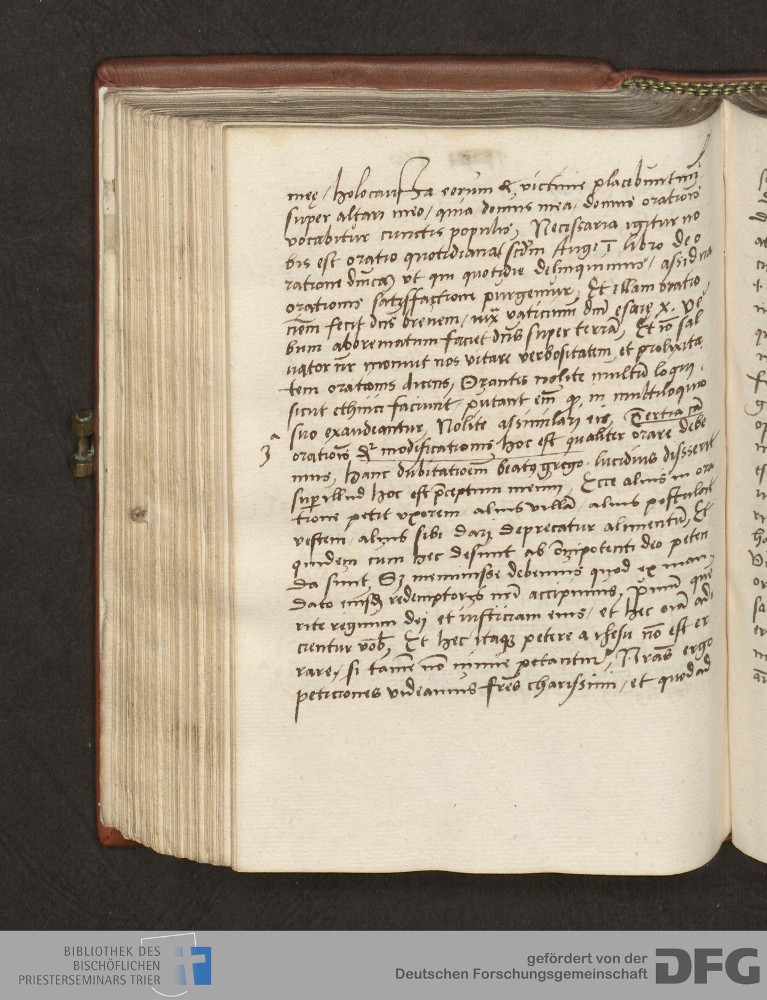 meę / holocausta eorum & victime placebunt mihi
super altari meo / quia domus mea, domus orationis
vocabitur cunctis populis, Necessaria igitur no
bis est oratio quotidiana scdm Aug. ī libro de o
ratione dnica, ut qui quotidie delinquimus / assidua
orationis satisfactione purgemur, Et illam oratio
nem fecit dns brevem / iux vaticinium dni esaię X. Ve
bum abbreviatum faciet dns super terrā, Et iō sal
vator nr monuit nos vitare verbositatem et prolixita
tem orationis dicens, Orantes nolite multū loqui,
sicut ethnici faciunt, putant em̄ q in multiloquio
suo exaudiantur, Nolite assimilari eis, Tertia
3ª
orationis modificationis hoc est qualiter orare debe
mus, Hanc dubitationem beatus grego. lucidius disserit
super illud hoc est preceptum meum, Ecce alius in ora
tione petit uxorem, alius villā, alius postulat
vestem, alius sibi dari deprecatur alimentū, Et
quidem cum hec desunt ab oīpotenti deo peten
da sunt, Sz meminisse debemus quod ex man
dato eiusdē redemptoris nri accipimus, Primū que
rite regnum dei et iusticiam eius, et hec oīa adi
cientur vob, Et hec itaqz petere a ihesu nō est er
rare, si tamē nō nimie petantur, Nras ergo
peticiones videamus fres charissimi, et quod ad
BIBLIOTHEK DES
BISCHÖFLICHEN
PRIESTERSEMINARS TRIER
gefördert von der
Deutschen Forschungsgemeinschaft
DFG